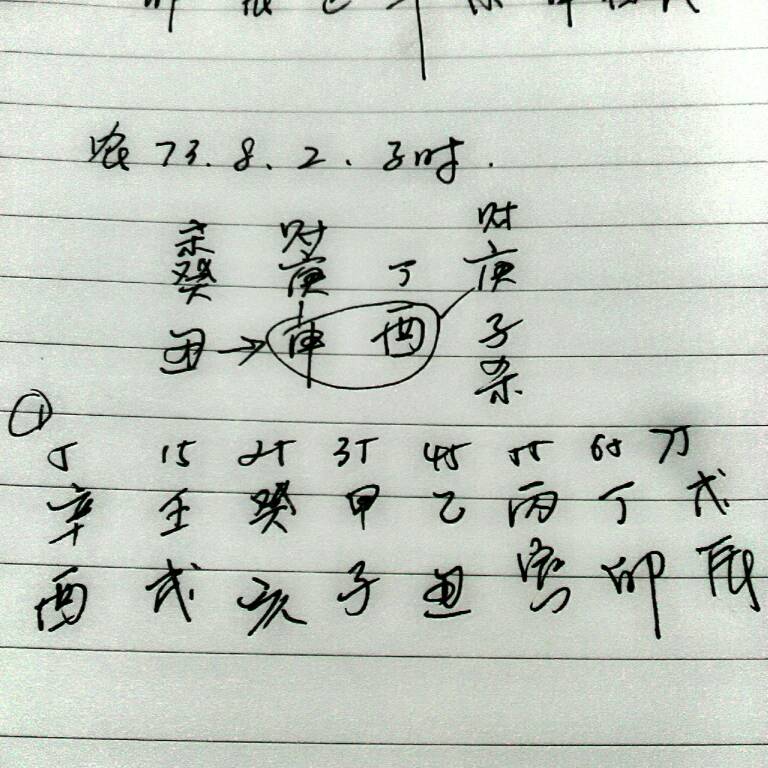 农 73.8.2.子时.
杀 财 财
癸 庚 丁 庚
丑→申 酉 子
杀
①
5 15 25 35 45 55 65 75
辛 壬 癸 甲 乙 丙 丁 戊
酉 戌 亥 子 丑 寅 卯 辰